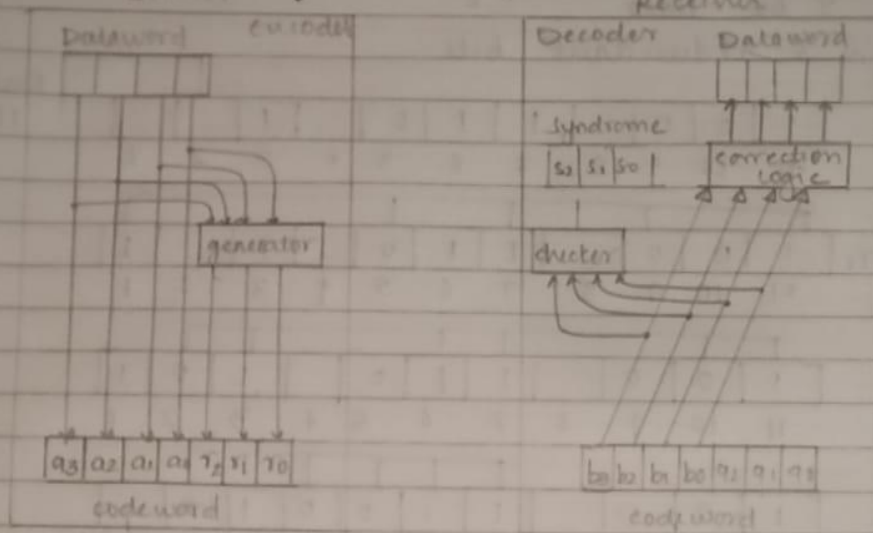 Encoder
Dataword
generator
a3 a2 a1 a0 r2 r1 r0
codeword
Receiver
Decoder
Dataword
Syndrome
s2 s1 s0
correction
Logic
checker
b3 b2 b1 b0 q2 q1 q0
codeword